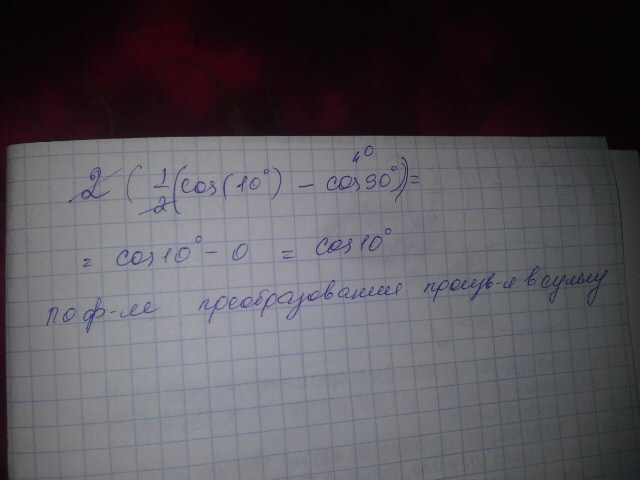 2 (1/2(cos(10°) - cos90°)) =
= cos10° - 0 = cos10°
по ф-ле преобразования произв-я в сумму.